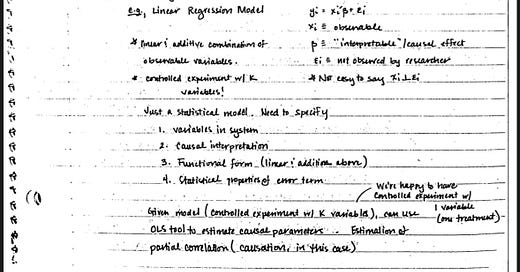 e.g., Linear Regression Model
yi = xi'β + εi
xi ≡ observable
* linear & additive combination of
observable variables.
β ≡ "interpretable"/causal effect
εi ≡ not observed by researcher
* controlled experiment w/ K
variables!
* Not easy to say xi ⊥ εi
Just a statistical model. Need to specify
1. variables in system
2. Causal interpretation
3. Functional form (linear & additive above)
4. Statistical properties of error term
We're happy to have
controlled experiment w/
1 variable
(one treatment)
Given model (controlled experiment w/ K variables), can use
OLS tool to estimate causal parameters. Estimation of
partial correlation (causation, in this case)